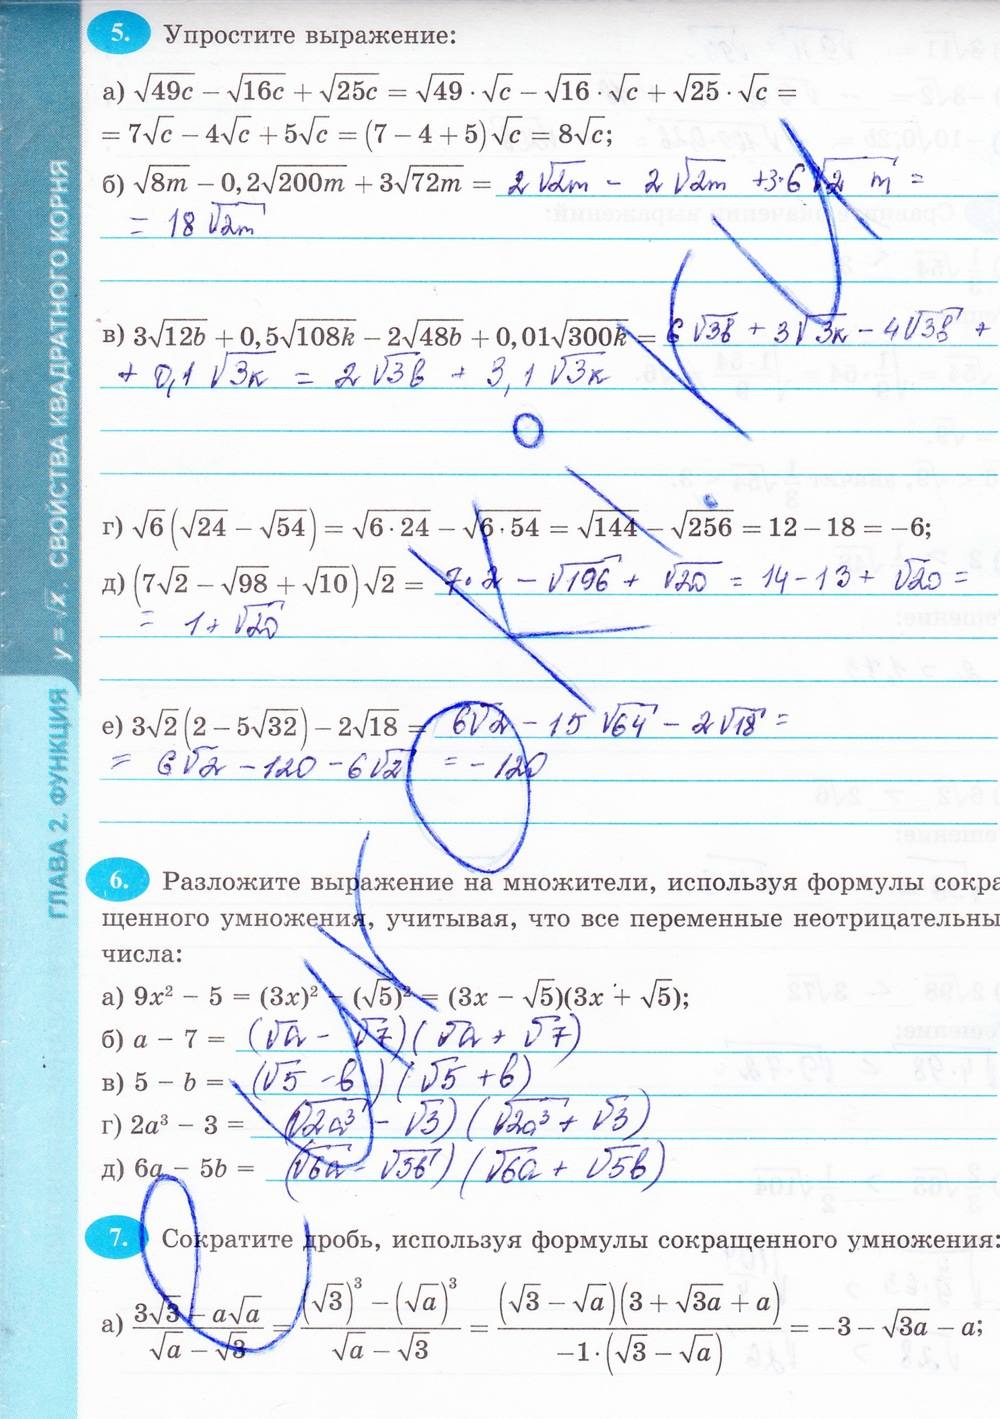 5. Упростите выражение:
а) √49c − √16c + √25c = √49 · √c − √16 · √c + √25 · √c =
= 7√c − 4√c + 5√c = (7 − 4 + 5)√c = 8√c;
б) √8m − 0,2√200m + 3√72m = 2√2m − 2√2m + 3·6√2 m =
= 18√2m
в) 3√12b + 0,5√108k − 2√48b + 0,01√300k = 6√3в + 3√3к − 4√3в +
+ 0,1√3к = 2√3в + 3,1√3к
г) √6(√24 − √54) = √6 · 24 − √6 · 54 = √144 − √256 = 12 − 18 = −6;
д) (7√2 − √98 + √10)√2 = 7·2 − √196 + √20 = 14 − 13 + √20 =
= 1 + √20
е) 3√2(2 − 5√32) − 2√18 = 6√2 − 15√64 − 2√18 =
= 6√2 − 120 − 6√2 = −120
6. Разложите выражение на множители, используя формулы сокра
щенного умножения, учитывая, что все переменные неотрицательны
числа:
а) 9x² − 5 = (3x)² − (√5)² = (3x − √5)(3x + √5);
б) a − 7 = (√a − √7)(√a + √7)
в) 5 − b = (√5 − в)(√5 + в)
г) 2a³ − 3 = (√2a³ − √3)(√2a³ + √3)
д) 6a − 5b = (√6a − √5в)(√6a + √5в)
7. Сократите дробь, используя формулы сокращенного умножения:
а) (3√3 − a√a)/(√a − √3) = ((√3)³ − (√a)³)/(√a − √3) = ((√3 − √a)(3 + √3a + a))/(−1·(√3 − √a)) = −3 − √3a − a;
ГЛАВА 2. ФУНКЦИЯ y = √x. СВОЙСТВА КВАДРАТНОГО КОРНЯ